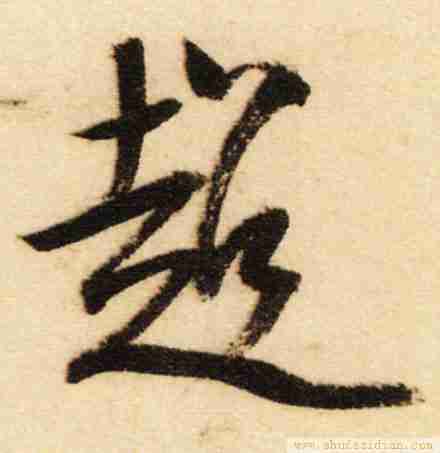 超
www.shufazidian.com